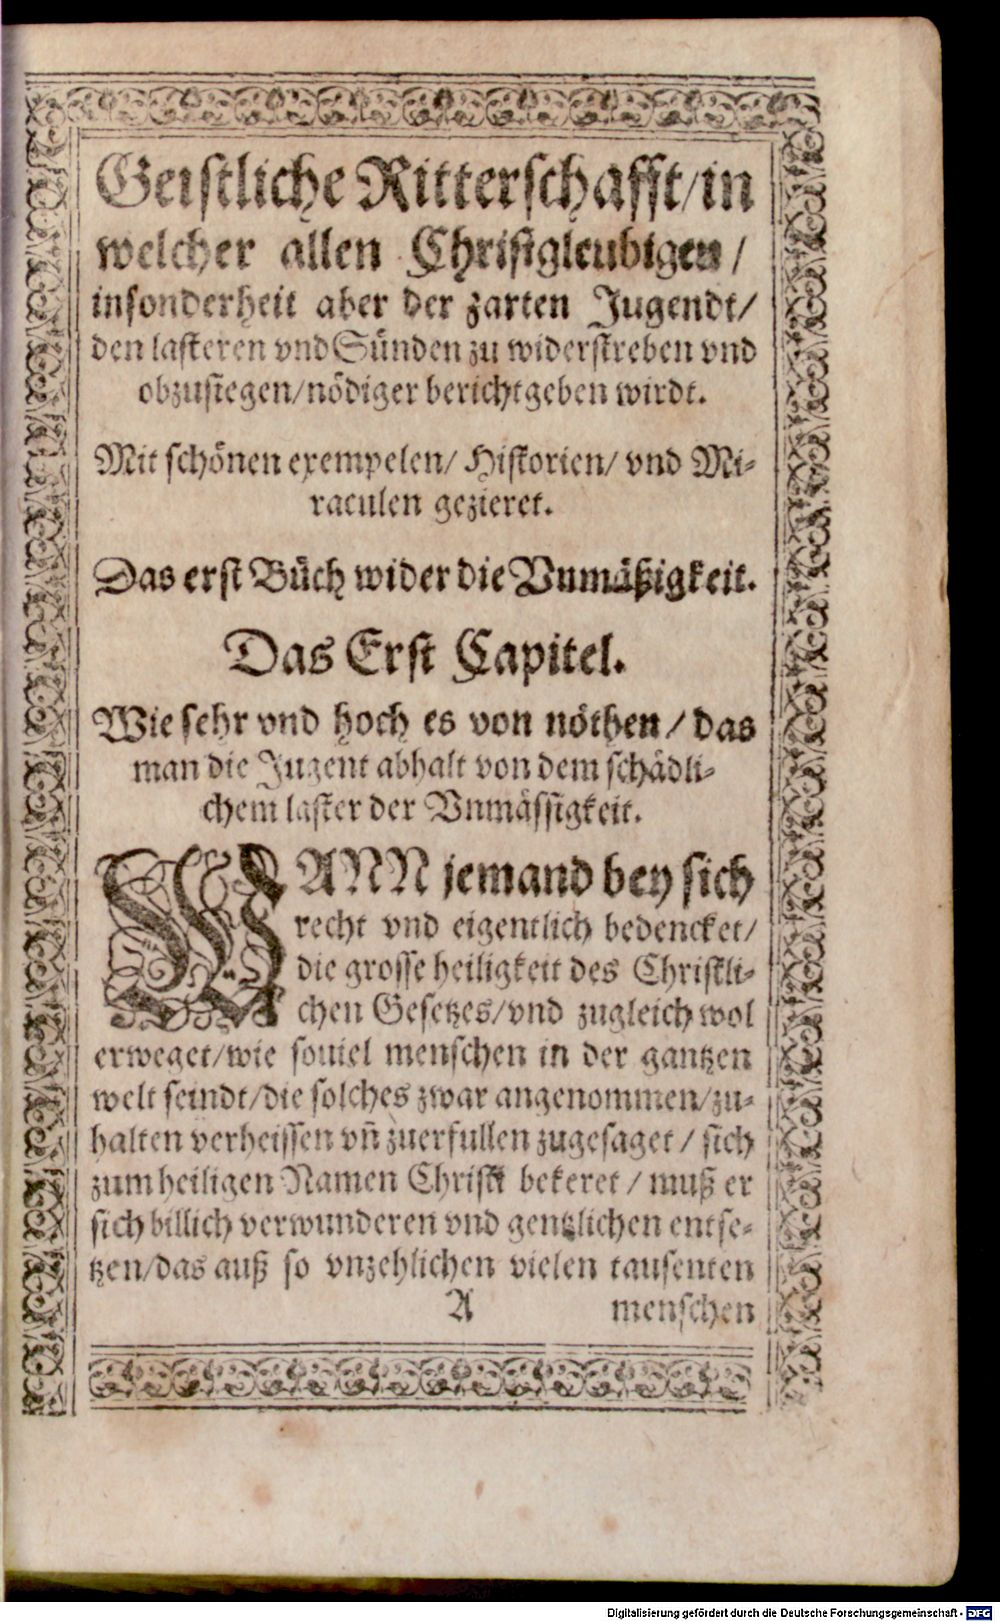 Geistliche Ritterschafft/in
welcher allen Christgleubigen/
insonderheit aber der zarten Jugendt/
den lasteren vnd Sünden zu widerstreben vnd
obzusiegen/nödiger bericht geben wirdt.
Mit schönen exempelen/ Historien/ vnd Mi-
raculen gezieret.
Das erst Büch wider die Vnmäßigkeit.
Das Erst Capitel.
Wie sehr vnd hoch es von nöthen/ das
man die Jugent abhalt von dem schädli-
chem laster der Vnmässigkeit.
WANN jemand bey sich
recht vnd eigentlich bedencket/
die grosse heiligkeit des Christli-
chen Gesetzes/vnd zugleich wol
erweget/wie souiel menschen in der gantzen
welt seindt/die solches zwar angenommen/zu-
halten verheissen vñ zuerfullen zugesaget/ sich
zum heiligen Namen Christi bekeret/ muß er
sich billich verwunderen vnd gentzlichen entse-
tzen/das auß so vnzehlichen vielen tausenten
A menschen
Digitalisierung gefördert durch die Deutsche Forschungsgemeinschaft - DFG